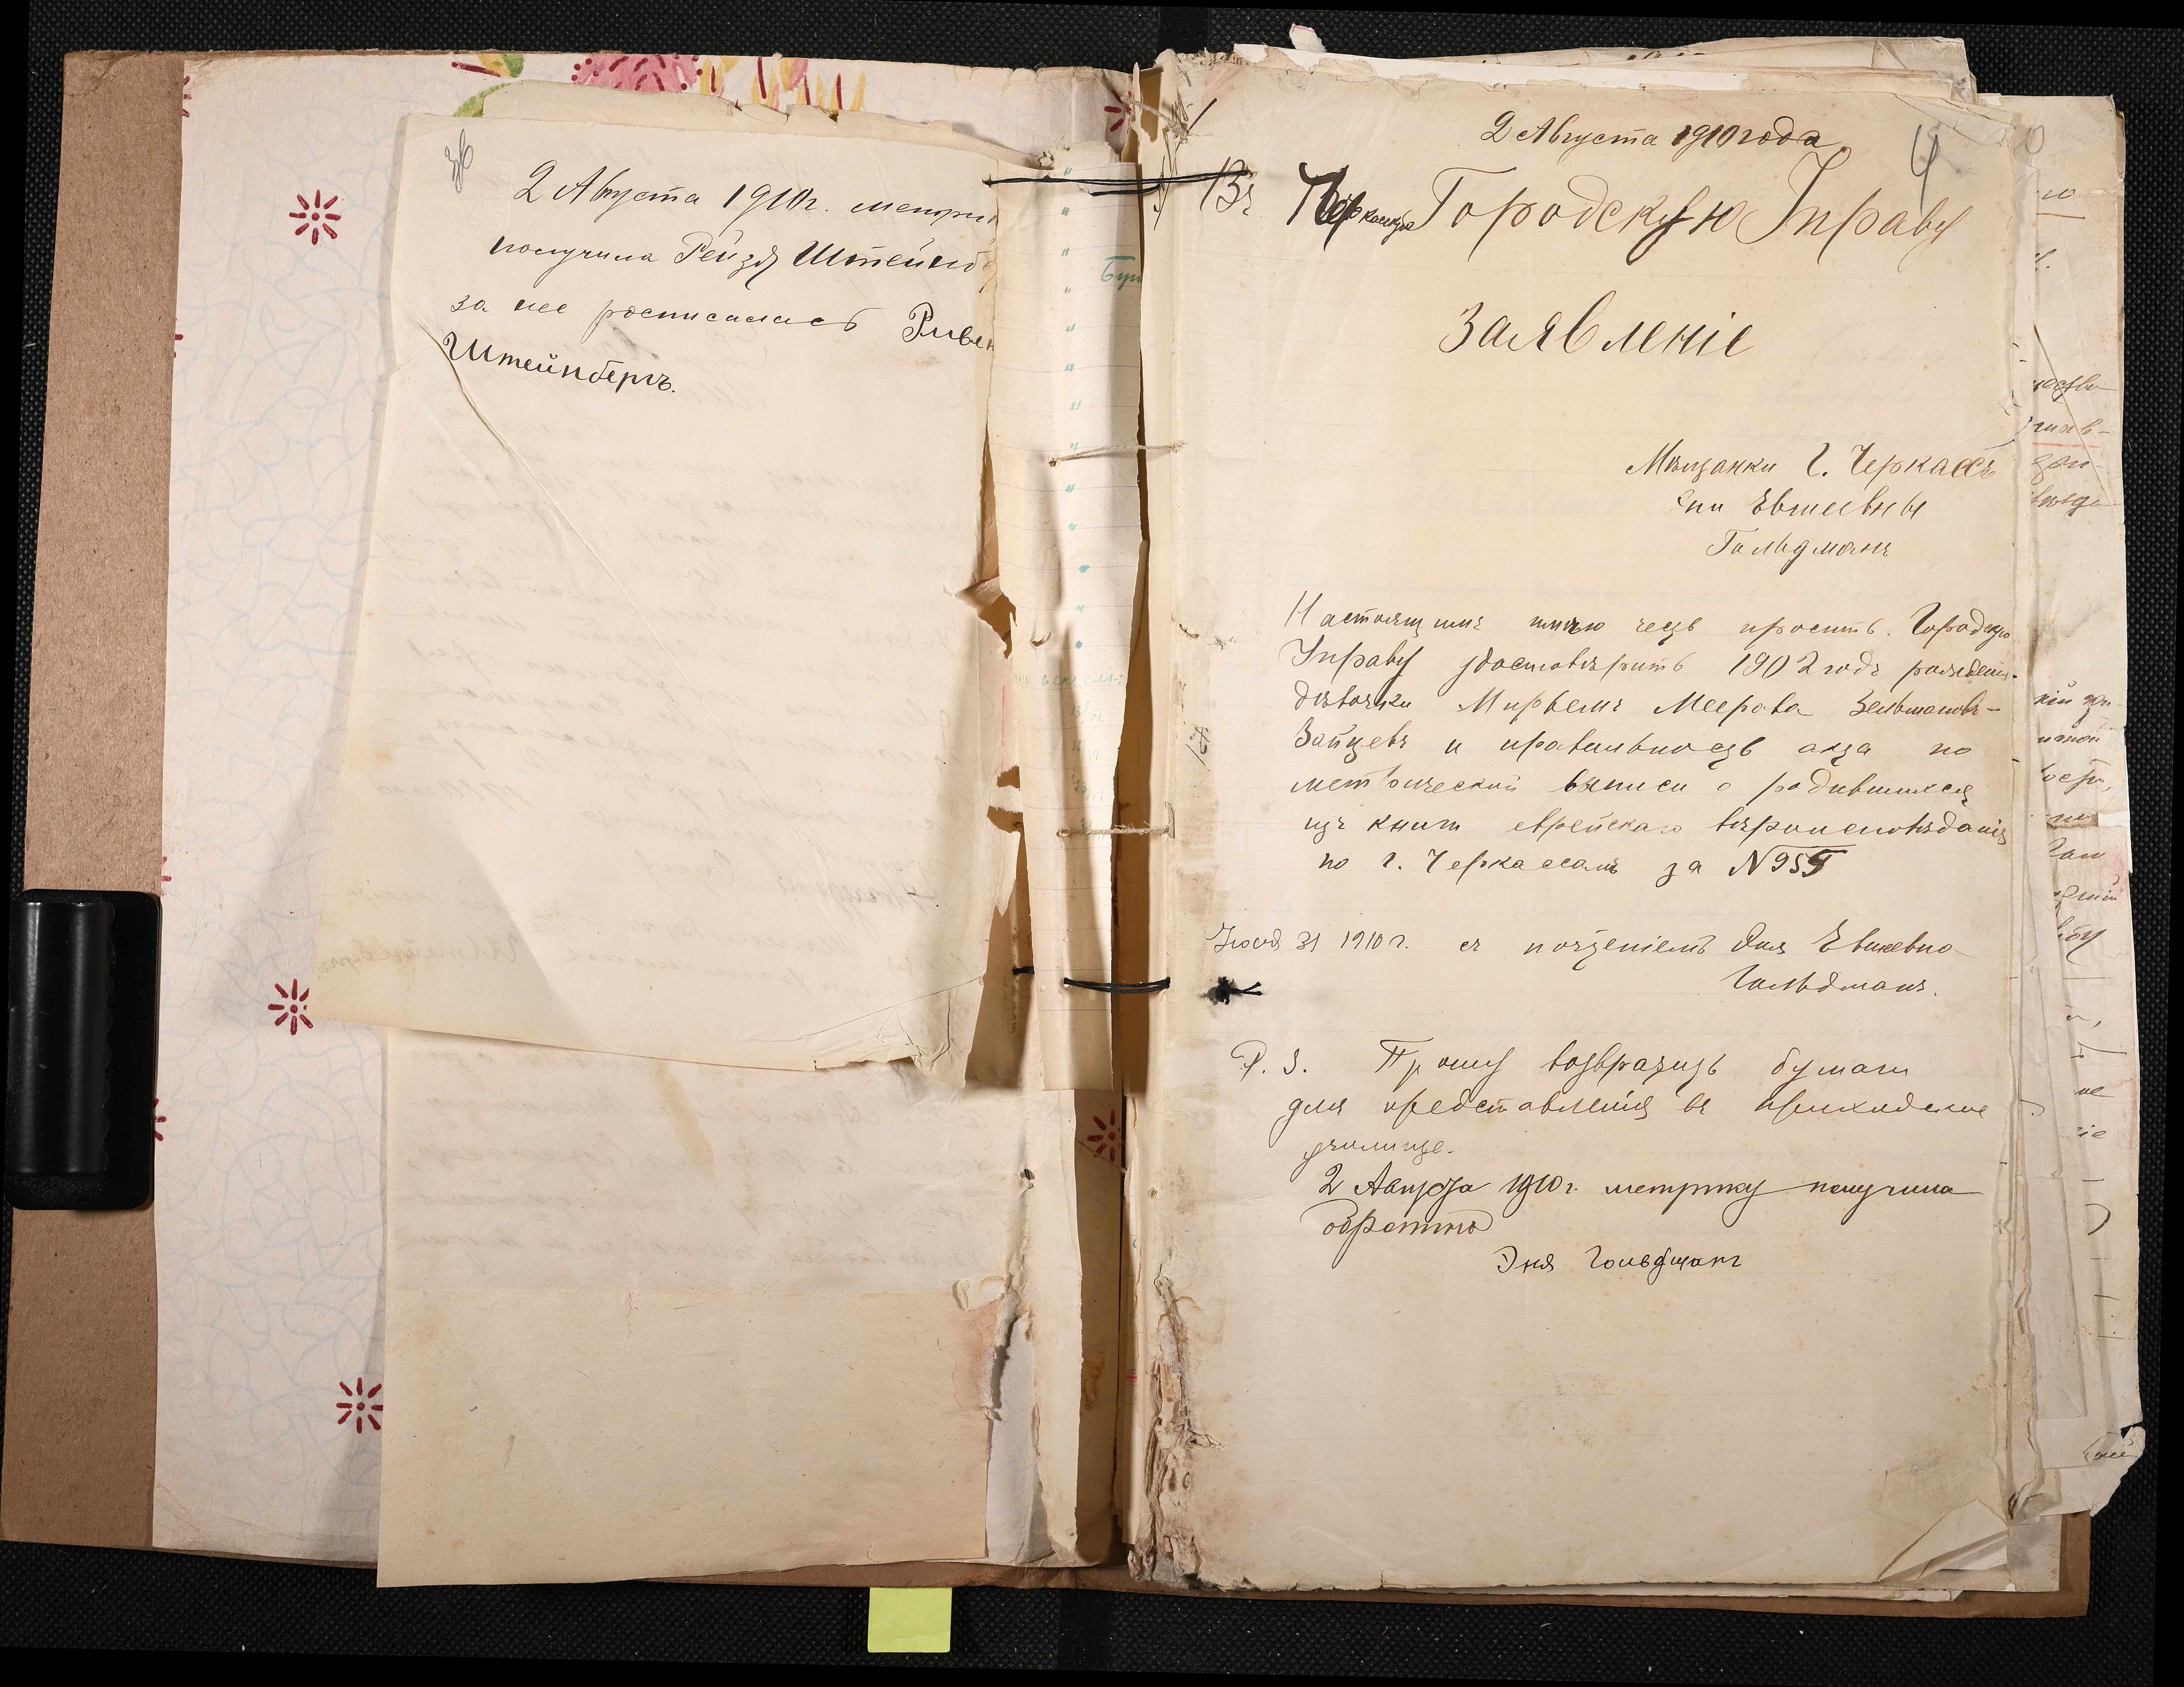 36
2 Августа 1910г. метри
получила Рейзя Штейнб
за нее росписалась Ривен
Штейнбергъ.
2 Августа 1910 года
4
Въ Городскую Управу
Заявленіе
Мѣщанки г. Черкассъ
Евшеевны
Гольдманъ
Настоящимъ имѣю честь просить Городскую
Управу удостовѣрить 1902 годъ рожденія
дѣвочки Мирьемъ Меерова Зельмановъ-
Зайцевъ и правильность акта по
метрической выписи о родившихся
изъ книги еврейскаго вѣроисповѣданія
по г. Черкассамъ за N 955
Іюля 31 1910 г. съ почтеніемъ Эня Евшеевна
Гольдманъ.
P. S. Прошу возвратить бумаги
для представленія въ приходское
училище.
2 Августа 1910 г. метрику получила
обратно
Эня Гольдманъ